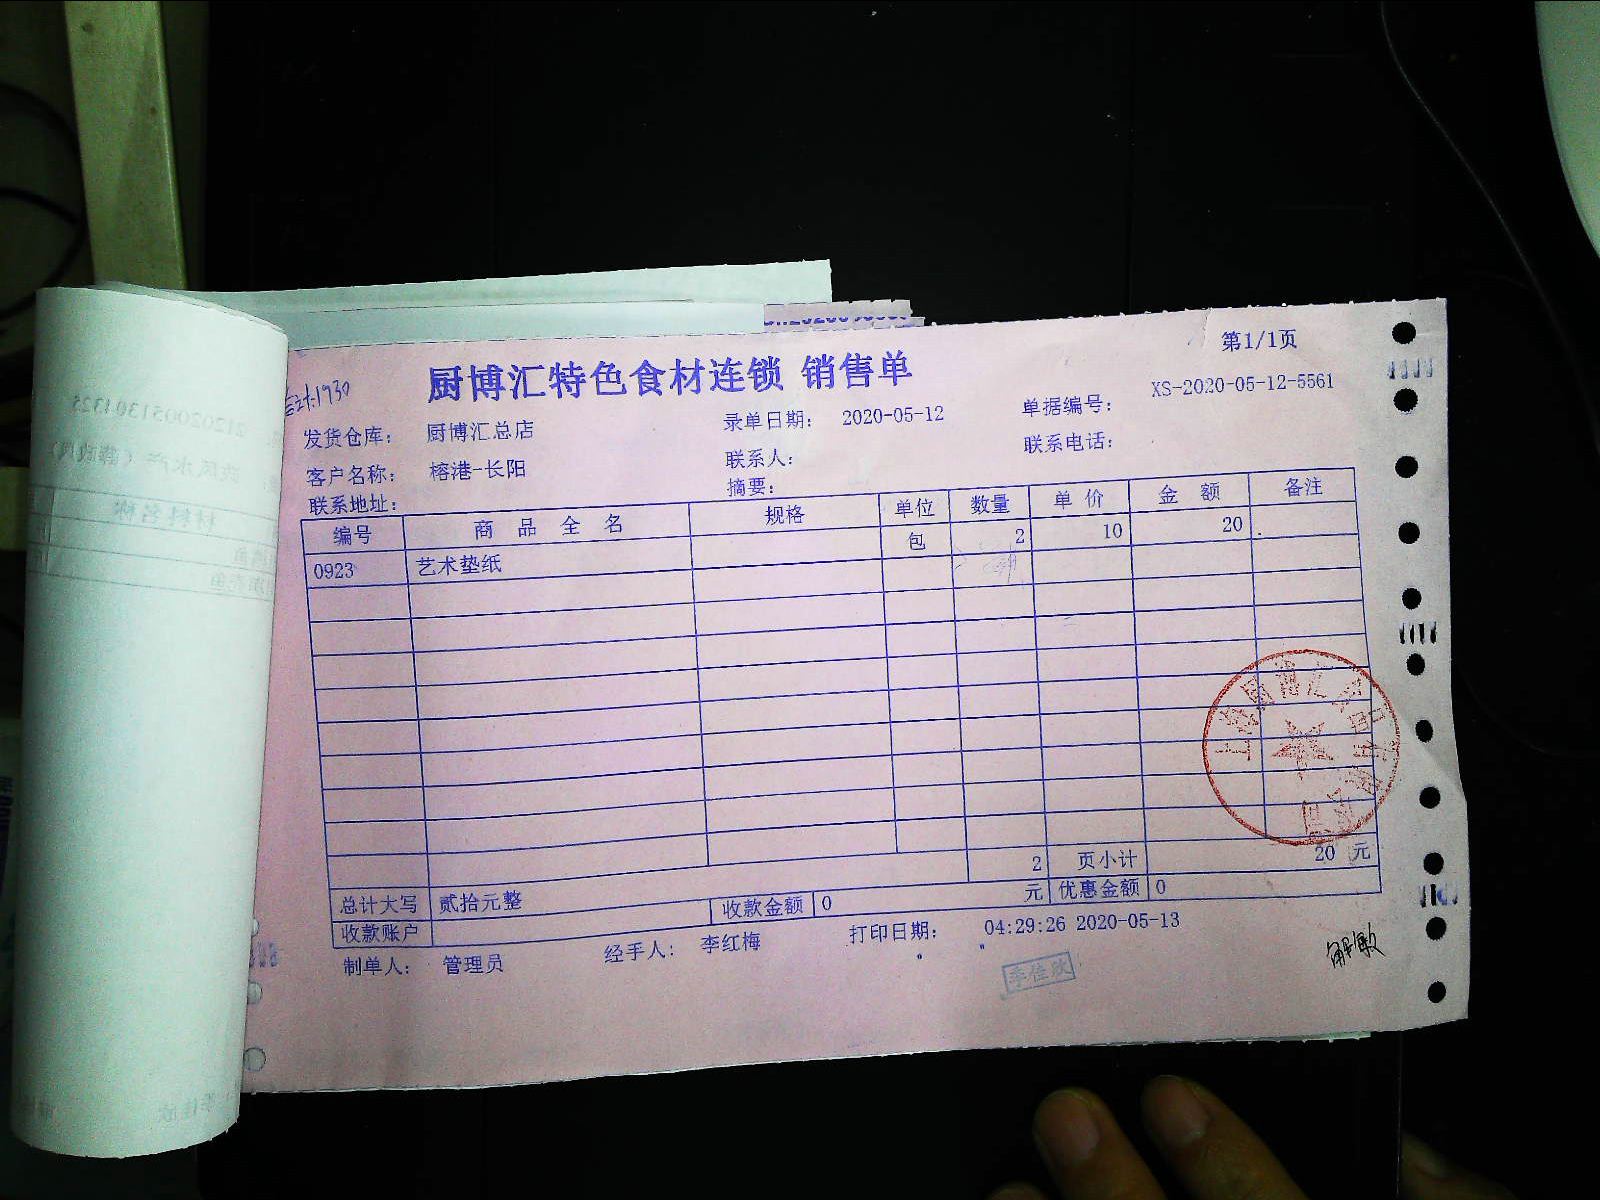 第1/1页
厨博汇特色食材连锁 销售单
发货仓库： 厨博汇总店 录单日期： 2020-05-12 单据编号： XS-2020-05-12-5561
客户名称： 榕港-长阳 联系人： 联系电话：
联系地址： 摘要：
编号 商品全名 规格 单位 数量 单价 金额 备注
0923 艺术垫纸 包 2 10 20
2 页小计 20 元
总计大写 贰拾元整 收款金额 0 元 优惠金额 0
收款账户
制单人： 管理员 经手人： 李红梅 打印日期： 04:29:26 2020-05-13
李佳欣